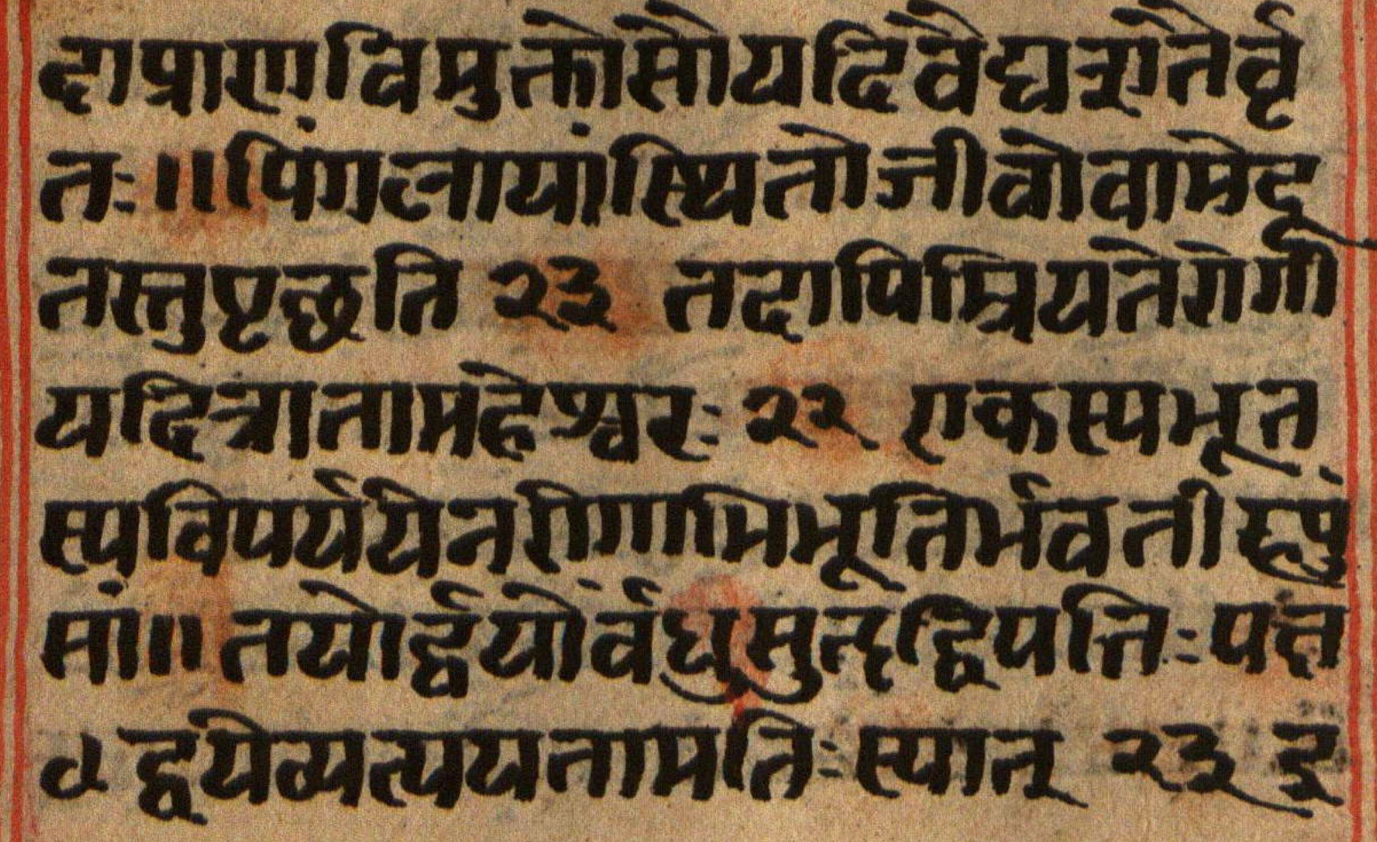 दाप्राणविमुक्तोसौयदिवैद्यत्रातैर्वृ
तः॥पिंगलायांस्थितोजीवोवामेदू
तस्तुपृछति २३ तदापिम्रियतेरोगी
यदित्रातामहेश्वरः २२ एकस्यभूत
स्यविपर्ययेनरोगाभिभूतिर्भवतीहपुं
सां॥ तयोर्द्वयोर्वंधुसुहृद्विपत्तिःपक्ष
द्वयेव्यत्ययतामृतिःस्यात् २३ इ